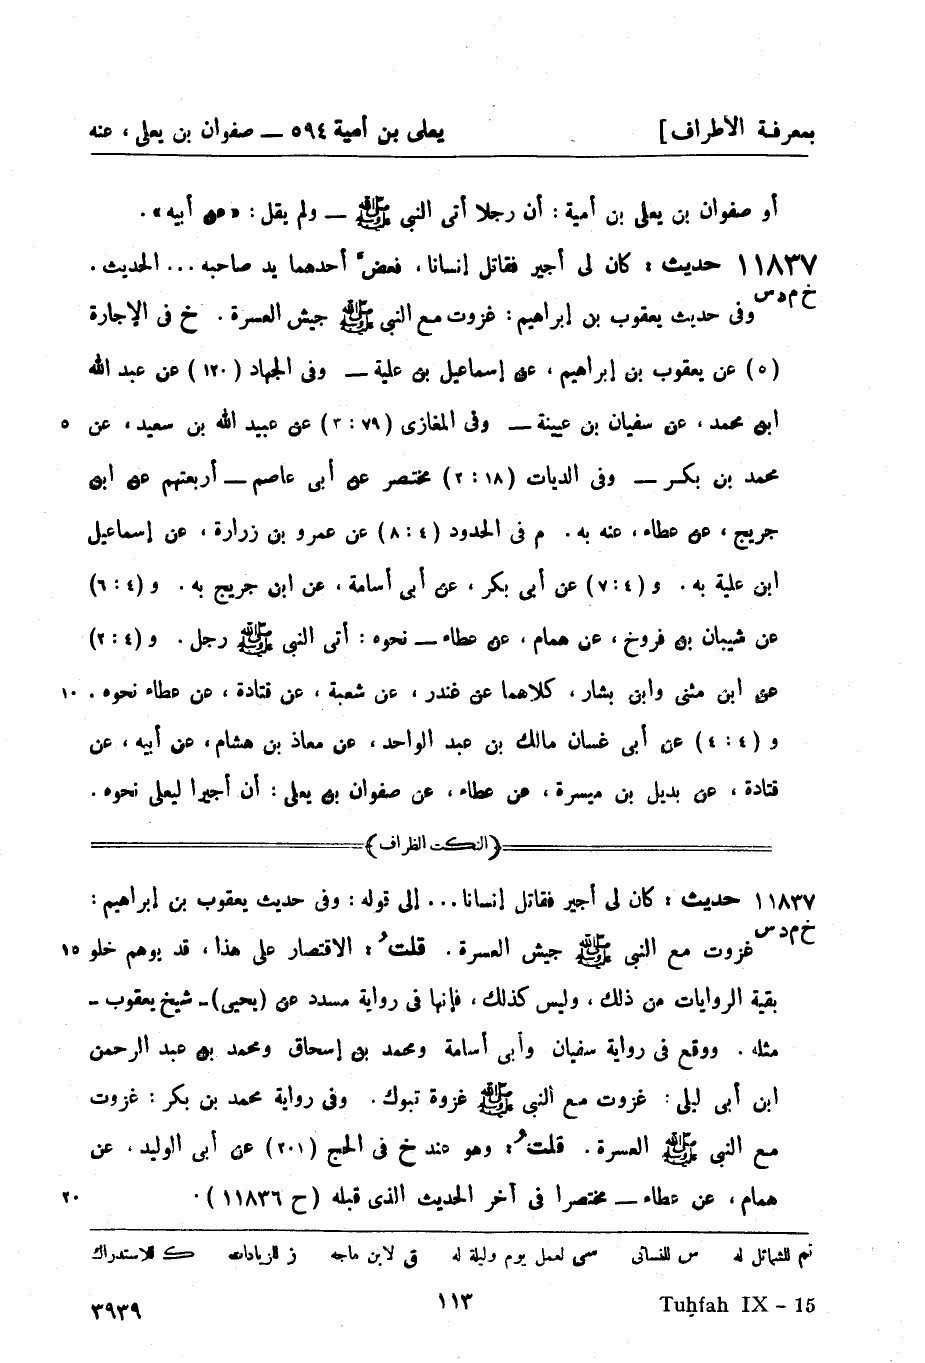 بمعرفة الأطراف] يعلى بن أمية ٥٩٤ — صفوان بن يعلى ، عنه
أو صفوان بن يعلى بن أمية : أن رجلا أتى النبي ﷺ — ولم يقل : «عن أبيه» .
١١٨٣٧ حديث : كان لى أجير فقاتل إنسانا ، فعضّ أحدهما يد صاحبه ... الحديث .
خ م د س وفى حديث يعقوب بن إبراهيم : غزوت مع النبى ﷺ جيش العسرة . خ فى الإجارة
(٥) عن يعقوب بن إبراهيم ، عن إسماعيل بن علية — وفى الجهاد (١٢٠) عن عبد الله
ابن محمد ، عن سفيان بن عيينة — وفى المغازى (٧٩ : ٣) عن عبيد الله بن سعيد ، عن ٥
محمد بن بكر — وفى الديات (١٨ : ٢) مختصر عن أبى عاصم — أربعتهم عن ابن
جريج ، عن عطاء ، عنه به . م فى الحدود (٤ : ٨) عن عمرو بن زرارة ، عن إسماعيل
ابن علية به . و (٤ : ٧) عن أبى بكر ، عن أبى أسامة ، عن ابن جريج به . و (٤ : ٦)
عن شيبان بن فروخ ، عن همام ، عن عطاء — نحوه : أتى النبى ﷺ رجل . و (٤ : ٢)
عن ابن مثنى وابن بشار ، كلاهما عن غندر ، عن شعبة ، عن قتادة ، عن عطاء نحوه . ١٠
و (٤ : ٤) عن أبى غسان مالك بن عبد الواحد ، عن معاذ بن هشام ، عن أبيه ، عن
قتادة ، عن بديل بن ميسرة ، عن عطاء ، عن صفوان بن يعلى : أن أجيرا ليعلى نحوه .
(النكت الظراف)
١١٨٣٧ حديث : كان لى أجير فقاتل إنسانا ... إلى قوله : وفى حديث يعقوب بن إبراهيم :
خ م د س غزوت مع النبى ﷺ جيش العسرة . قلتُ : الاقتصار على هذا ، قد يوهم خلو ١٥
بقية الروايات من ذلك ، وليس كذلك ، فإنها فى رواية مسدد عن (يحيى) - شيخ يعقوب -
مثله . ووقع فى رواية سفيان وأبى أسامة ومحمد بن إسحاق ومحمد بن عبد الرحمن
ابن أبى ليلى : غزوت مع النبى ﷺ غزوة تبوك . وفى رواية محمد بن بكر : غزوت
مع النبى ﷺ العسرة . قلتُ : وهو عند خ فى الحج (٢٠١) عن أبى الوليد ، عن
همام ، عن عطاء — مختصرا فى آخر الحديث الذى قبله (ح ١١٨٣٦) . ٢٠
تم للشمائل له س للنسائى سى لعمل يوم وليلة له ق لابن ماجه ز للزيادات ك للاستدراك
Tuḥfah IX - 15 ١١٣ ٣٩٣٩